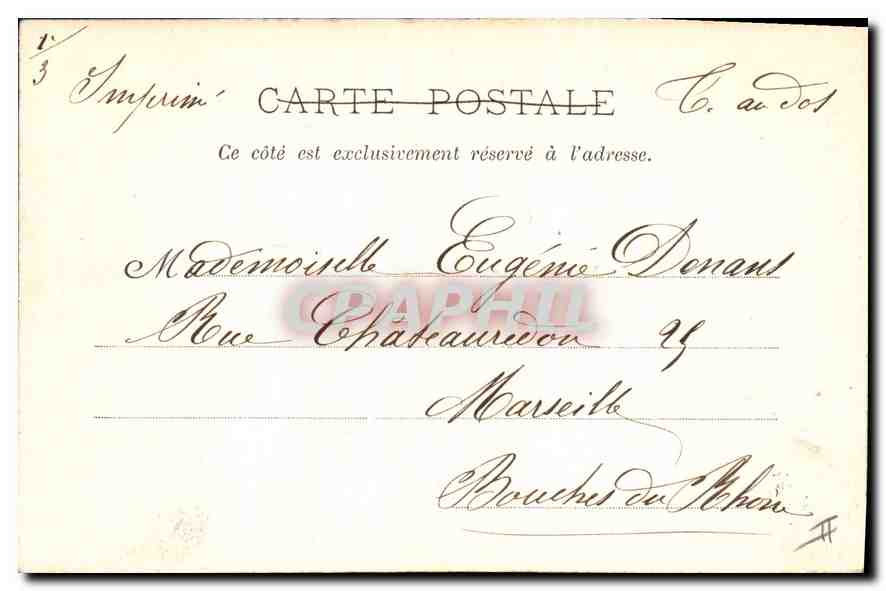 1.
/
3
Imprimé CARTE POSTALE T. au dos
Ce côté est exclusivement réservé à l'adresse.
Mademoiselle Eugénie Donans
CPAPHIL
Rue Châteauredon 25
Marseille
Bouches du Rhône
II